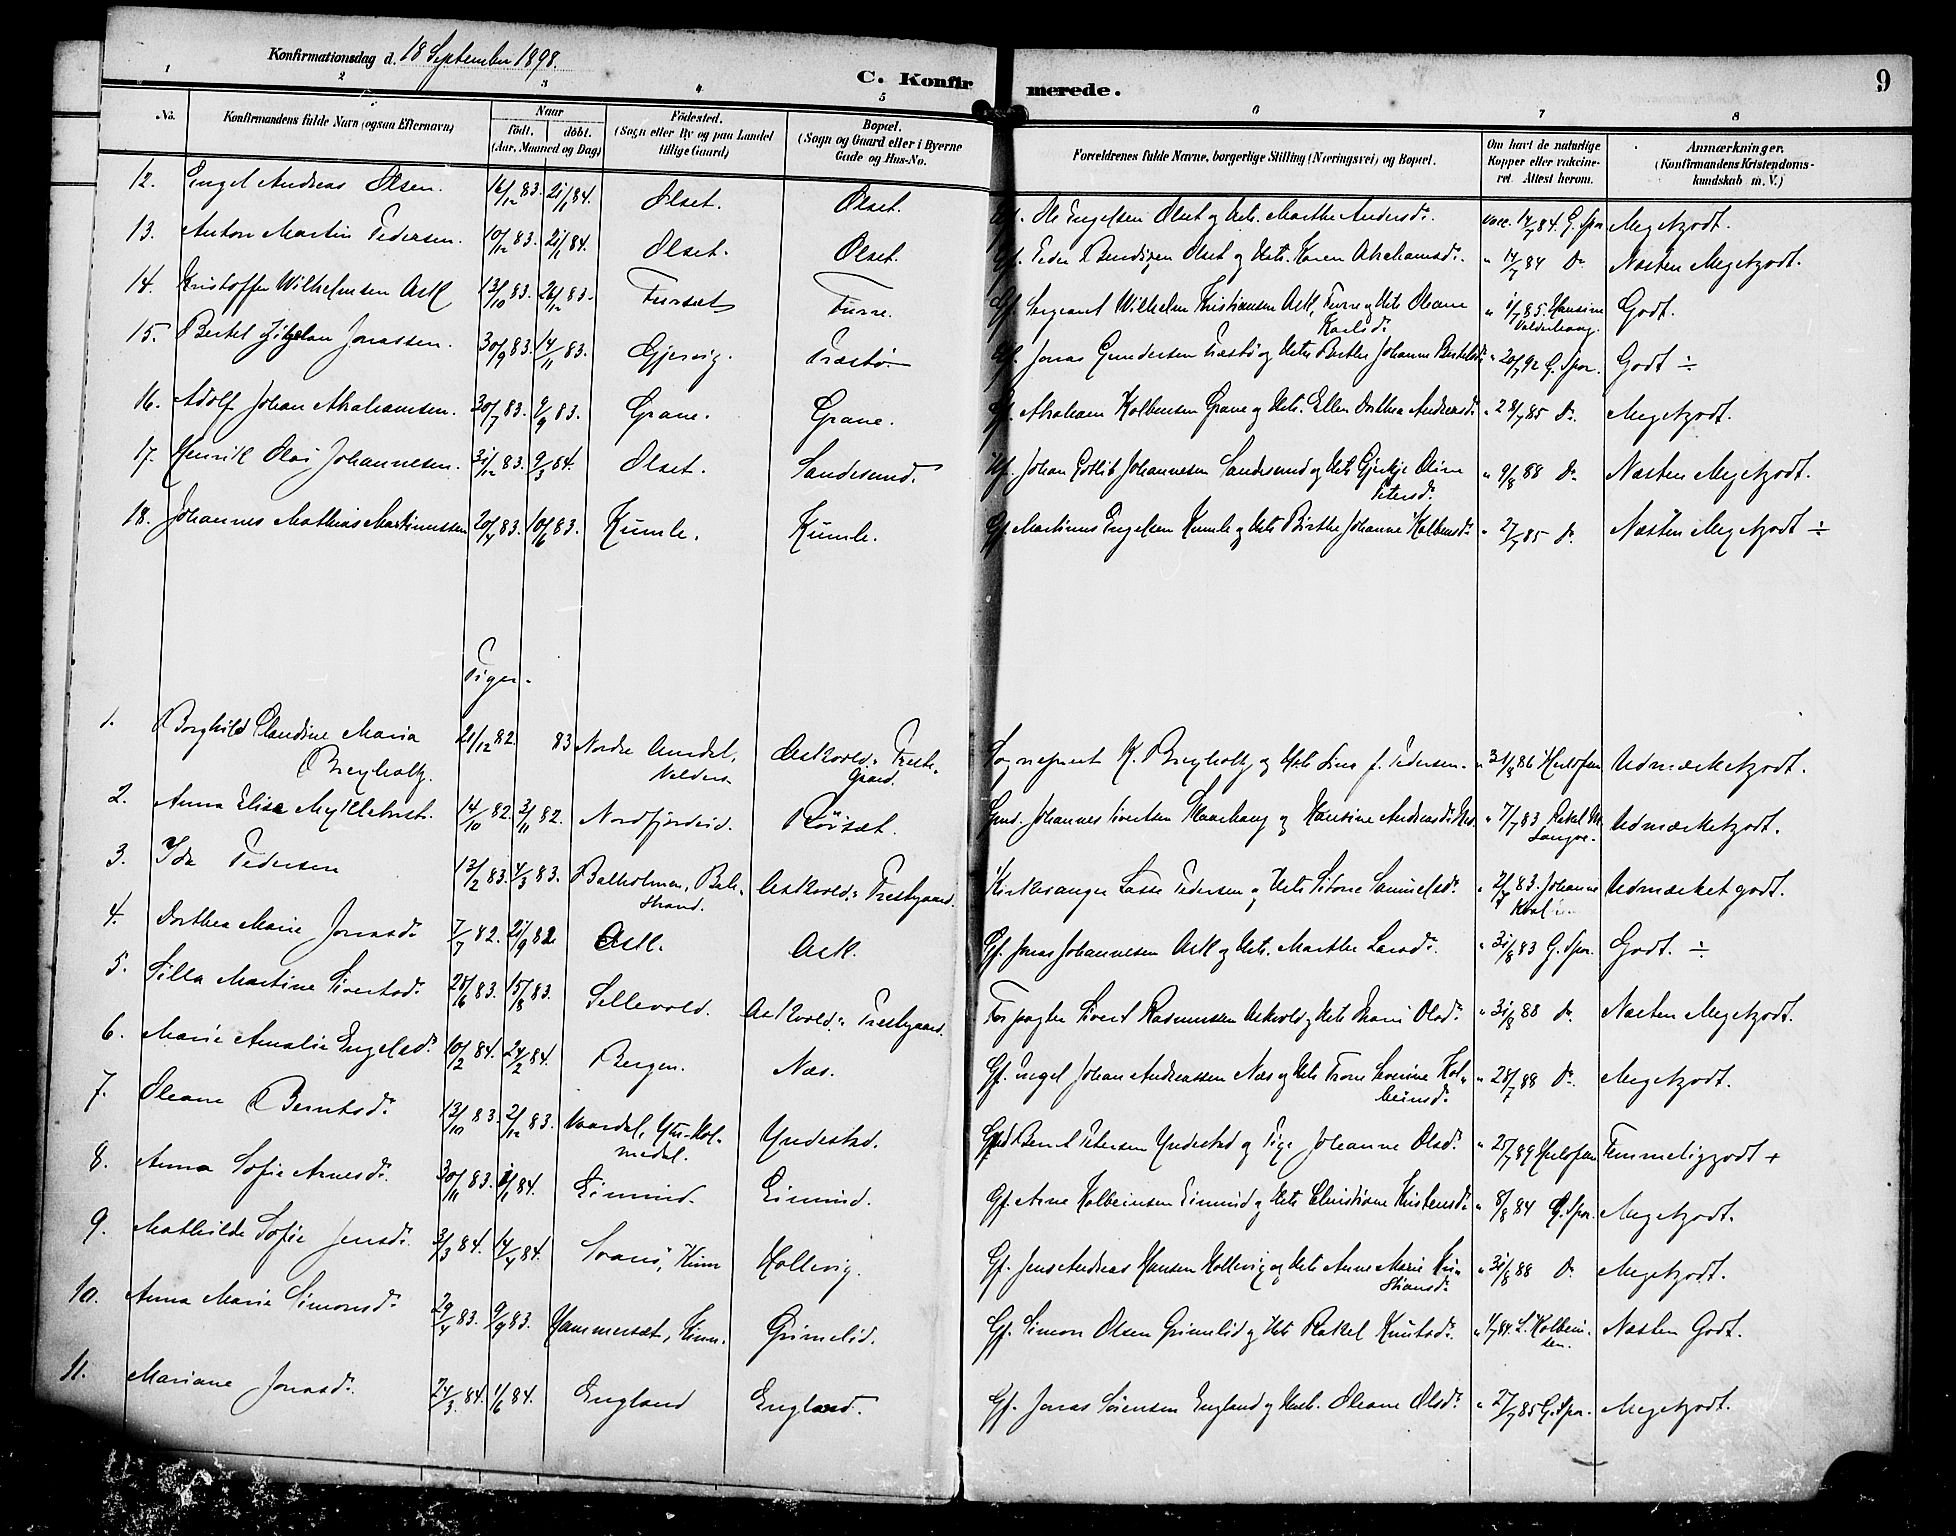 Konfirmationsdag d. 18 September 1898.
C. Konfirmerede.
9
1 2 3 4 5 6 7 8
No. Konfirmandens fulde Navn (ogsaa Efternavn) Naar født. døbt. (Aar, Maaned og Dag) Fødested. (Sogn eller By og paa Landet tillige Gaard) Bopæl. (Sogn og Gaard eller i Byerne Gade og Hus-No. Forældrenes fulde Navne, borgerlige Stilling (Næringsvei) og Bopæl. Om havt de naturlige Kopper eller vakcineret. Attest herom. Anmærkninger. (Konfirmandens Kristendomskundskab m. V.)
12. Engel Andreas Olsen. 16/12 83. 21/1 84. Olset. Olset. Gf. Ole Engelsen Olset og Ht. Marthe Andersd. vacc. 14/7 84. G. Spor Megetgodt.
13. Anton Martin Pedersen. 10/12 83. 21/1 84. Olset. Olset. Gf. Peder Bendixen Olset og Hst. Karen Abrahamsd. " 14/7 84 Do. Næsten Megetgodt.
14. Kristoffer Wilhelmsen Ask 13/10 83. 26/12 83. Furset Furre. Gf. Sergeant Wilhelm Kristiansen Ask, Furre og Hst. Oleane Karlsd. " 1/7 85. Hansine Valderhaug. Godt.
15. Bertel Jonassen. 30/9 83. 14/11 83. Gjervig. Præstø. Gf. Jonas Gundersen Præstø og Hst. Berthe Johanne Bertelsd. " 20/7 92 G. Spor. Godt ÷
16. Adolf Johan Abrahamsen. 30/7 83. 9/9 83. Grane. Grane. Gf. Abraham Kolbensen Grane og Hst. Ellen Dorthea Andreasd. " 28/7 85 Do. Megetgodt.
17. Henrik Olai Johannesen. 31/12 83. 9/3 84. Olset. Sandesund. Gf. Johan Gotlib Johannesen Sandesund og Hst. Gjertje Oline Petersd. " 9/8 88 Do. Næsten Megetgodt.
18. Johannes Mathias Martinussen 20/4 83. 10/6 83. Kumle. Kumle. Gf. Martinus Engelsen Kumle og Hst. Birthe Johanne Kolbensd. " 27/7 85 Do. Næsten Megetgodt ÷
Piger.
1. Borghild Claudine Maria Breyholtz. 21/12 82. 83 Nordre Aurdal, Valders Askvolds Præstegaard. Sogneprest K. Breyholtz og Hst. Lina f. Pedersen. " 31/8 86 Herlofsen Udmærketgodt.
2. Anna Elise Myklebust. 14/10 82. 3/11 82. Nordfjordeid. Röiset. Gmd. Johannes Sivertsen Skaarhaug og Hansine Andreasd. " 7/7 83 Rakel Langøe. Udmærketgodt.
3. Ida Pedersen 13/2 83. 4/3 83. Balholmen, Balestrand. Askvolds Præstegaard. Kirkesanger Lasse Pedersen og Hst. Sidone Samuelsd. " 2/7 83. Johanne Udmærket godt.
4. Dorthea Marie Jonasd. 7/7 82. 21/9 82 Ask. Ask. Gf. Jonas Johannesen Ask og Hst. Marthe Larsd. " 31/8 83 G. Spor. Godt. ÷
5. Silla Martine Sivertsd. 28/6 83. 15/8 83. Sellevold. Askvolds Præstegaard. Forpagter Sivert Rasmussen Askvold og Hst. Mari Olsd. " 31/8 88 Do. Næsten Megetgodt.
6. Marie Amalie Engelsd. 10/2 84. 24/2 84. Bergen. Næs. Gf. Engel Johan Andreassen Næs og Hst. Trone Severine Kolbeinsd. " 28/7 88 Do. Megetgodt.
7. Oleane Berntsd. 13/10 83. 2/12 83. Vaardal, Ytre Holmedal. Yndestad. Gmd Bernt Petersen Yndestad og Pige Johanne Olsd. " 25/7 89 Herlofsen Temmeliggodt +
8. Anna Sofie Arnesd. 30/11 83. 1/1 84. Eimind. Eimind. Gf. Arne Kolbeinsen Eimind og Hst. Christiane Kristensd. " 8/8 84 G. Spor. Megetgodt.
9. Mathilde Sofie Jensd. 3/3 84. 14/4 84. Svanö, Kinn Hollevig. Gf. Jens Andreas Hansen Hollevig og Hst. Anne Marie Kristiansd. " 31/8 88 Do. Megetgodt.
10. Anna Marie Simonsd. 29/4 83. 9/9 83. Hammerset, Kinn. Grimelid. Gf. Simon Olsen Grimelid og Hst. Rakel Knutsd. " 4/7 84. L. Kolbeinsen. Næsten Godt.
11. Mariane Jonasd. 24/3 84. 1/6 84. England England. Gf. Jonas Sörensen England og Hust. Oleane Olsd. " 27/7 85 G. Spor. Megetgodt.